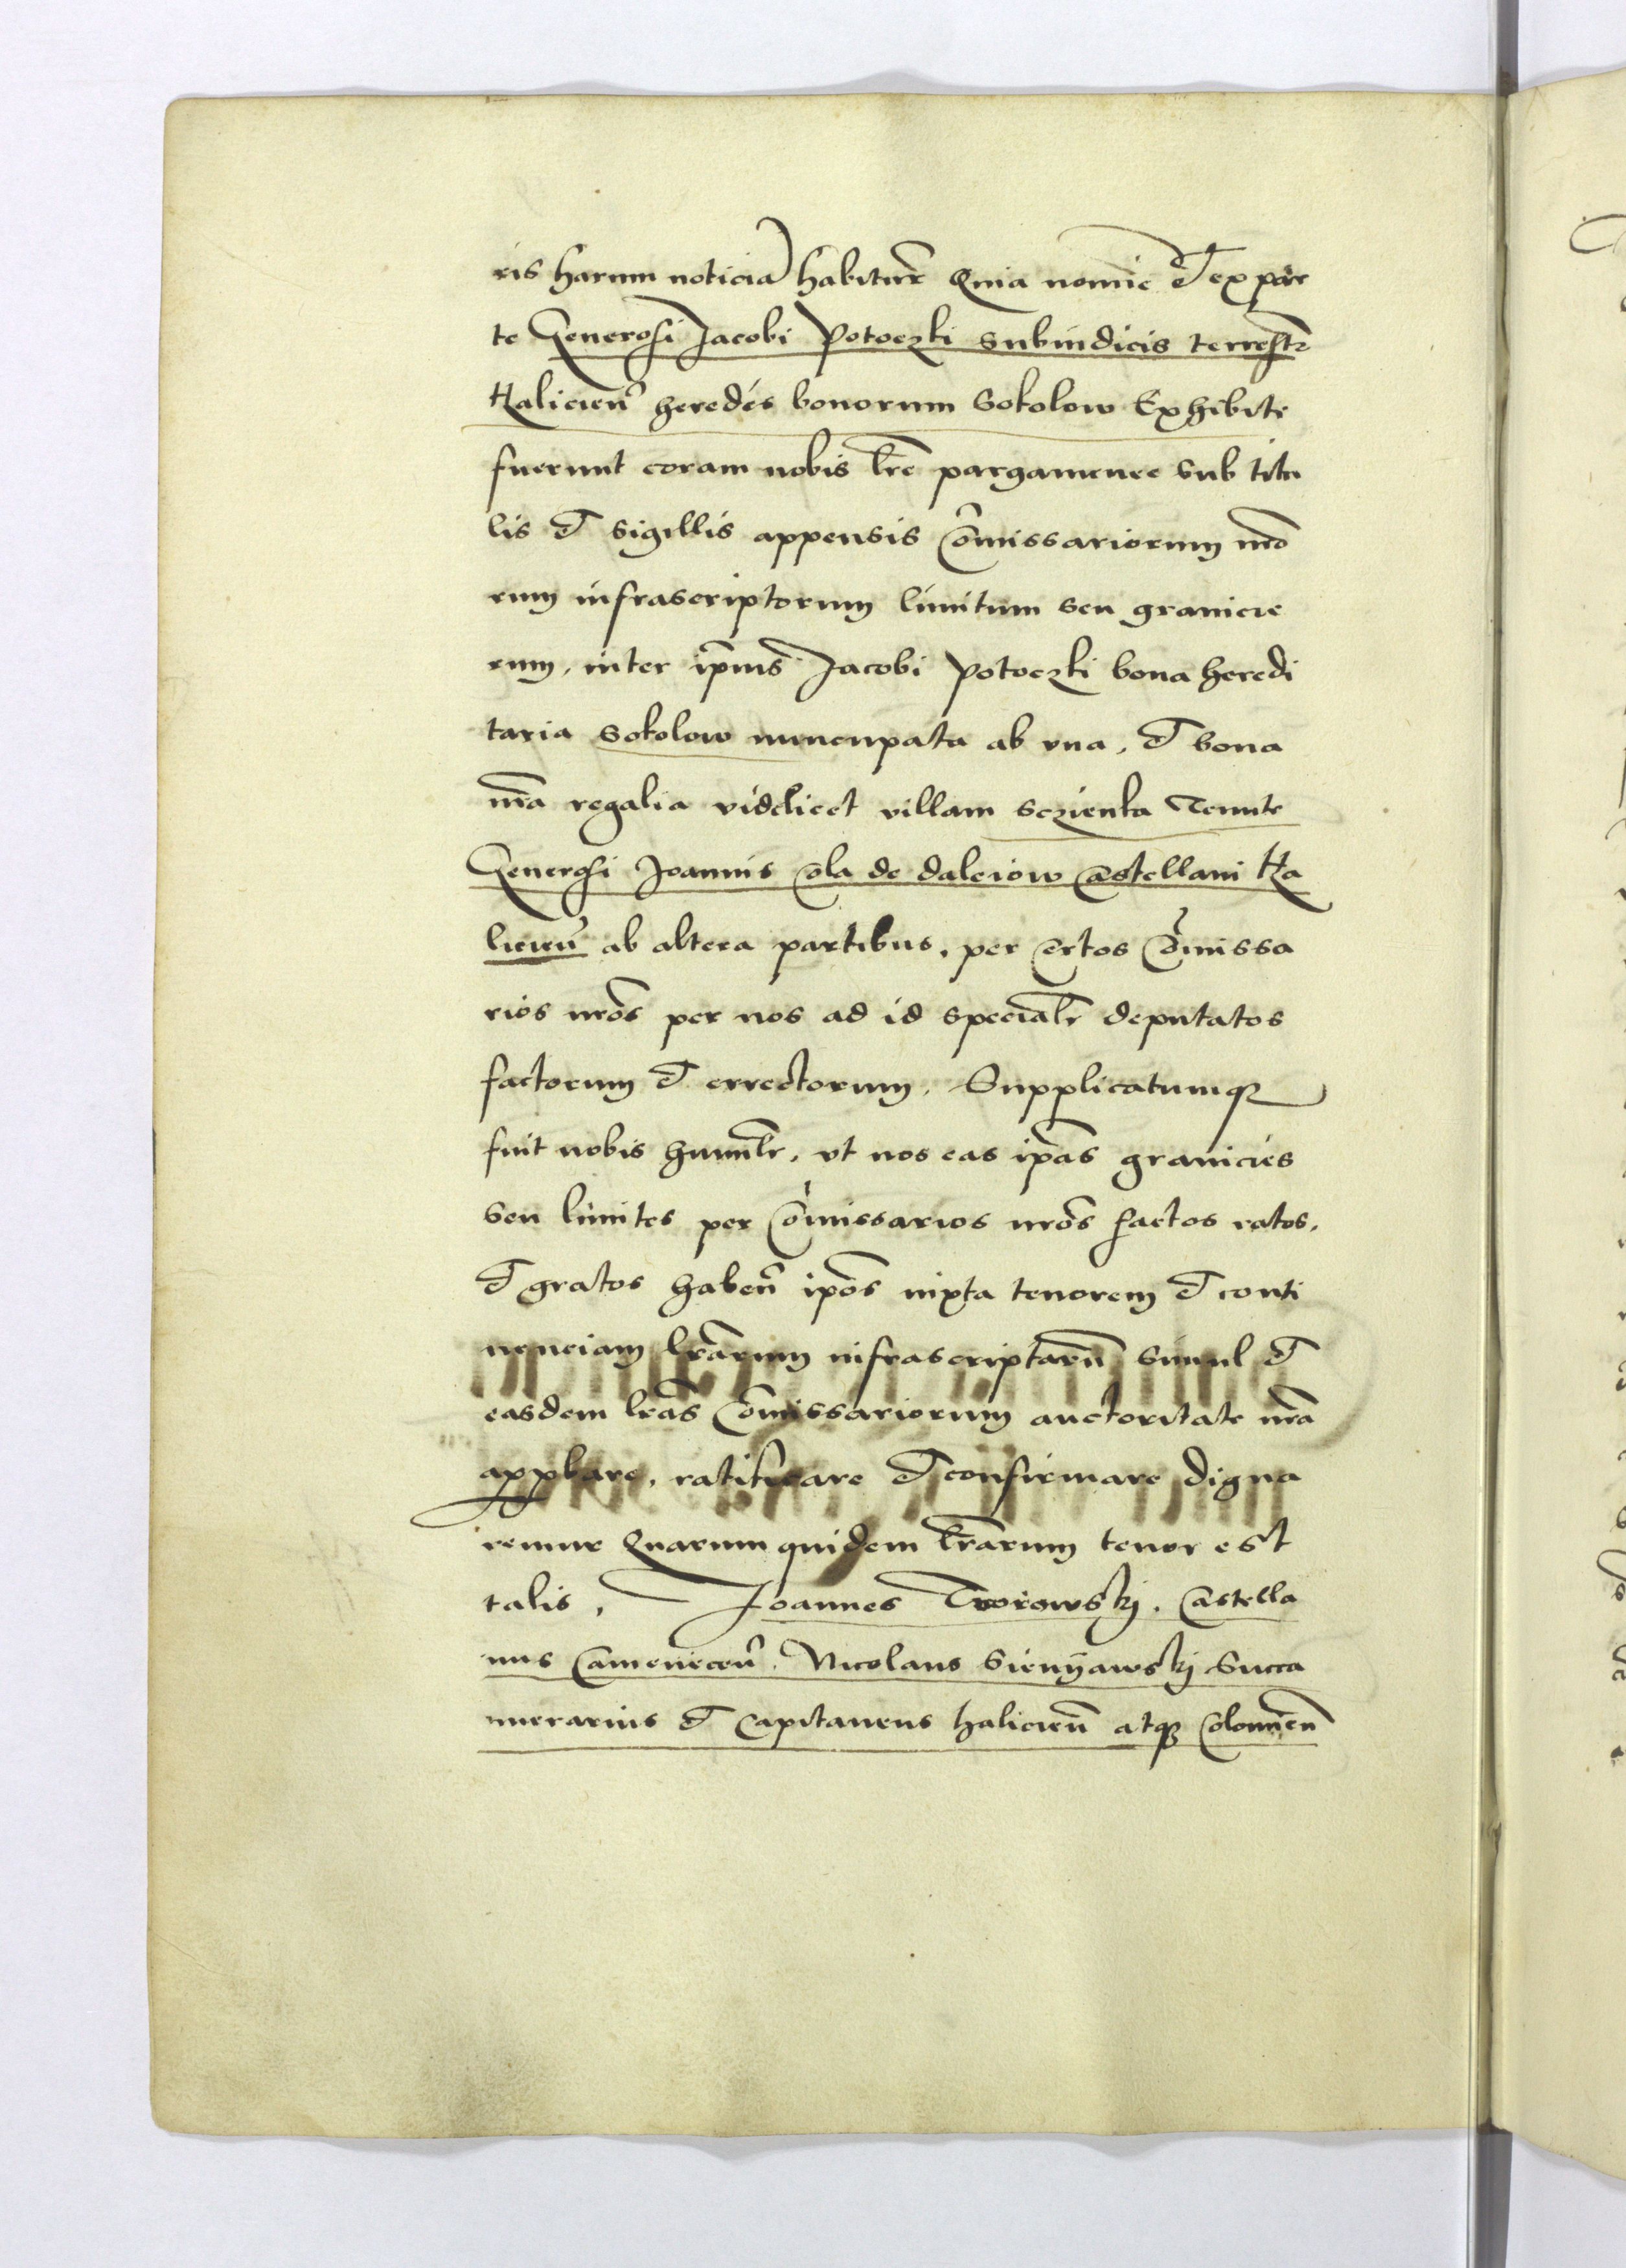 ris harum noticia habitur̄ Quia nomie et ex par
te Generosi Jacobi Potoczki Subiudicis terrestr̄
Halicieñ heredes bonorum Sokolow Exhibite
fuerunt coram nobis lr̄e pargamenee sub titu
lis et sigillis appensis Com̄issariorum nr̄o
rum infrascriptorum limitum seu granicie
rum, inter ip̄ius Jacobi Potoczki bona heredi
taria Sokolow nuncupata ab vna, et bona
nr̄a regalia videlicet villam Sczienka Tenute
Generosi Joannis Cola de Daleiow Castellani Ha
licieñ ab altera partibus, per certos Com̄issa
rios nr̄os per nos ad id specialr̄ deputatos
factorum et errectorum, Supplicatumq₃
fuit nobis humilr̄, vt nos eas ip̄as granicies
seu limites per Com̄issarios nr̄os factos ratos,
et gratos habeñ ip̄os iuxta tenorem et conti
nenciam lr̄arum infrascriptarū simul et
easdem lr̄as Com̄issariorum auctoritate nr̄a
appbare, ratificare et confirmare digna
remur Quarum quidem lr̄arum tenor est
talis, Joannes Tworowskj, Castella
nus Cameneceñ, Nicolaus Sienyawskj Succa
merarius et Capitaneus halicieñ atq₃ Colomień